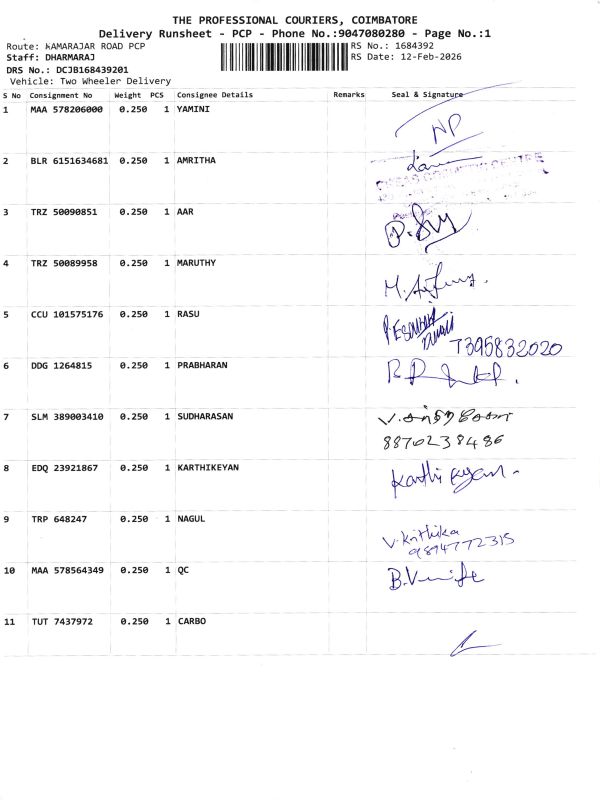 THE PROFESSIONAL COURIERS, COIMBATORE
Delivery Runsheet - PCP - Phone No.:9047080280 - Page No.:1
Route: KAMARAJAR ROAD PCP
RS No.: 1684392
Staff: DHARMARAJ
RS Date: 12-Feb-2026
DRS No.: DCJB168439201
Vehicle: Two Wheeler Delivery
S No Consignment No Weight PCS Consignee Details Remarks Seal & Signature
1 MAA 578206000 0.250 1 YAMINI NP
2 BLR 6151634681 0.250 1 AMRITHA
3 TRZ 50090851 0.250 1 AAR
4 TRZ 50089958 0.250 1 MARUTHY
5 CCU 101575176 0.250 1 RASU
7395832020
6 DDG 1264815 0.250 1 PRABHARAN
7 SLM 389003410 0.250 1 SUDHARASAN
8870238486
8 EDQ 23921867 0.250 1 KARTHIKEYAN Karthikeyan
9 TRP 648247 0.250 1 NAGUL
V. Krithika
9894772315
10 MAA 578564349 0.250 1 QC
11 TUT 7437972 0.250 1 CARBO